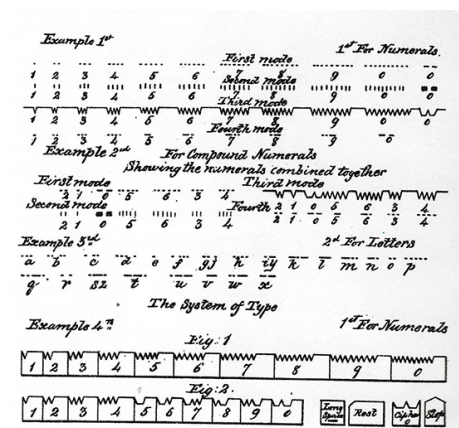 Example 1st 1st For Numerals.
First mode
1 2 3 4 5 6 7 8 9 0 0
Second mode
1 2 3 4 5 6 7 8 9 0 0
Third mode
1 2 3 4 5 6 7 8 9 0 0
Fourth mode
1 2 3 4 5 6 7 8 9 0
Example 2nd For Compound Numerals
Showing the numerals combined together
First mode Third mode
2 1 0 5 6 3 4 2 1 0 5 6 3 4
Second mode Fourth
2 1 0 5 6 3 4 2 1 0 5 6 3 4
Example 3rd 2nd For Letters
a b c d e f gj h iy k l m n o p
q r sz t u v w x
The System of Type
Example 4th 1st For Numerals
Fig: 1
1 2 3 4 5 6 7 8 9 0
Fig: 2
1 2 3 4 5 6 7 8 9 0 Long Space Rest Cipher 0 Stop